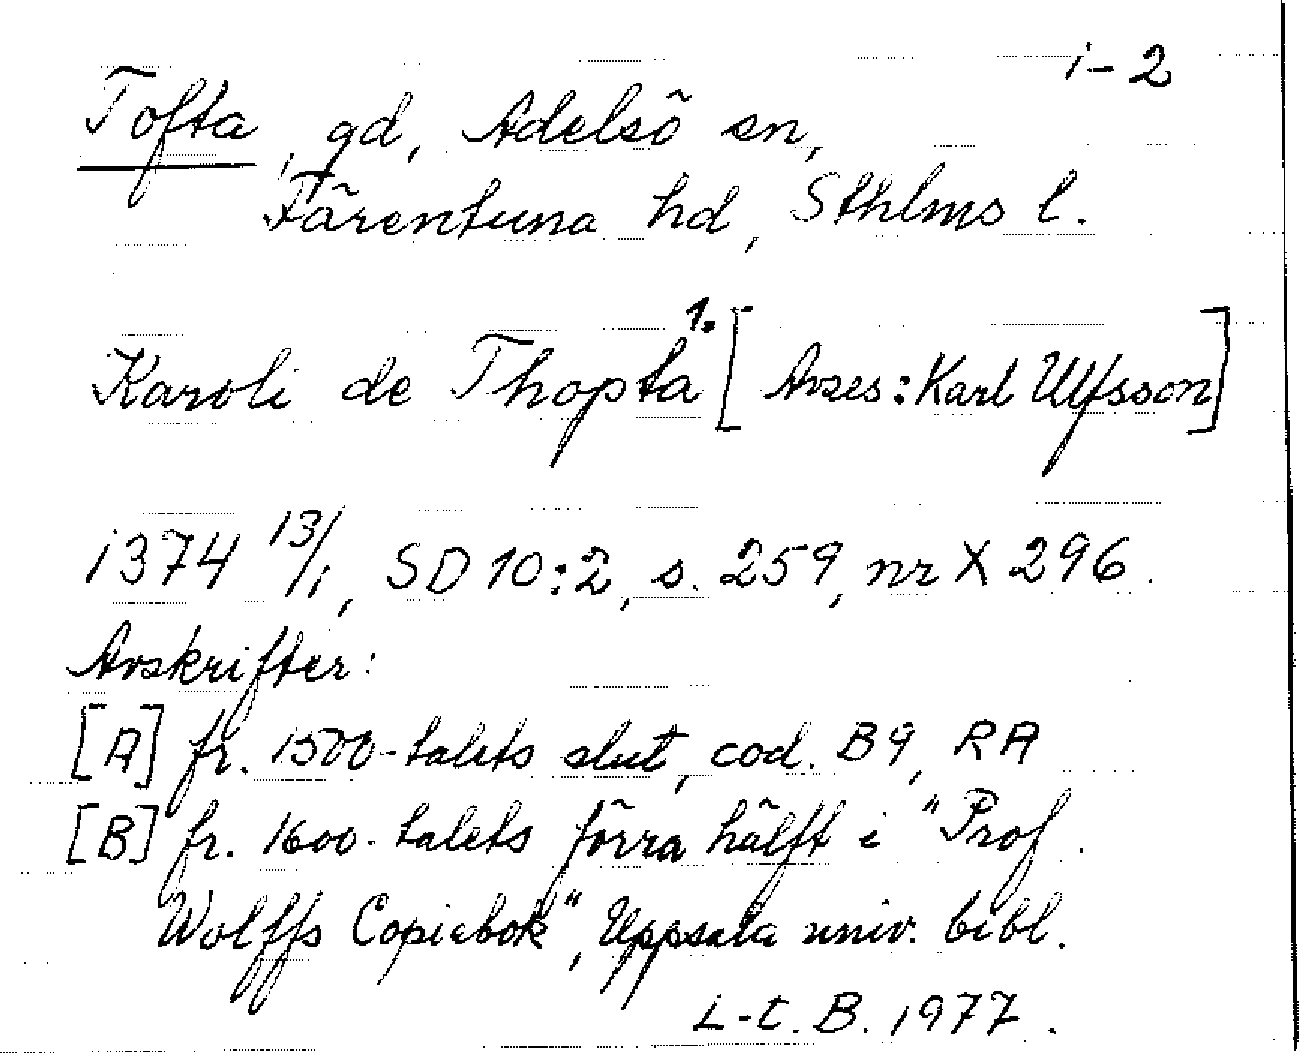 i-2
Tofta, gd, Adelsö sn,
Färentuna hd, Sthlms l.
Karoli de Thopta 1. [Avses: Karl Ulfsson]
1374 13/1, SD 10:2, s. 259, nr X 296.
Avskrifter:
[A] fr. 1500-talets slut, cod. B9, RA
[B] fr. 1600-talets förra hälft i "Prof.
Wolffs Copiebok", Uppsala univ. bibl.
L-t. B. 1977.